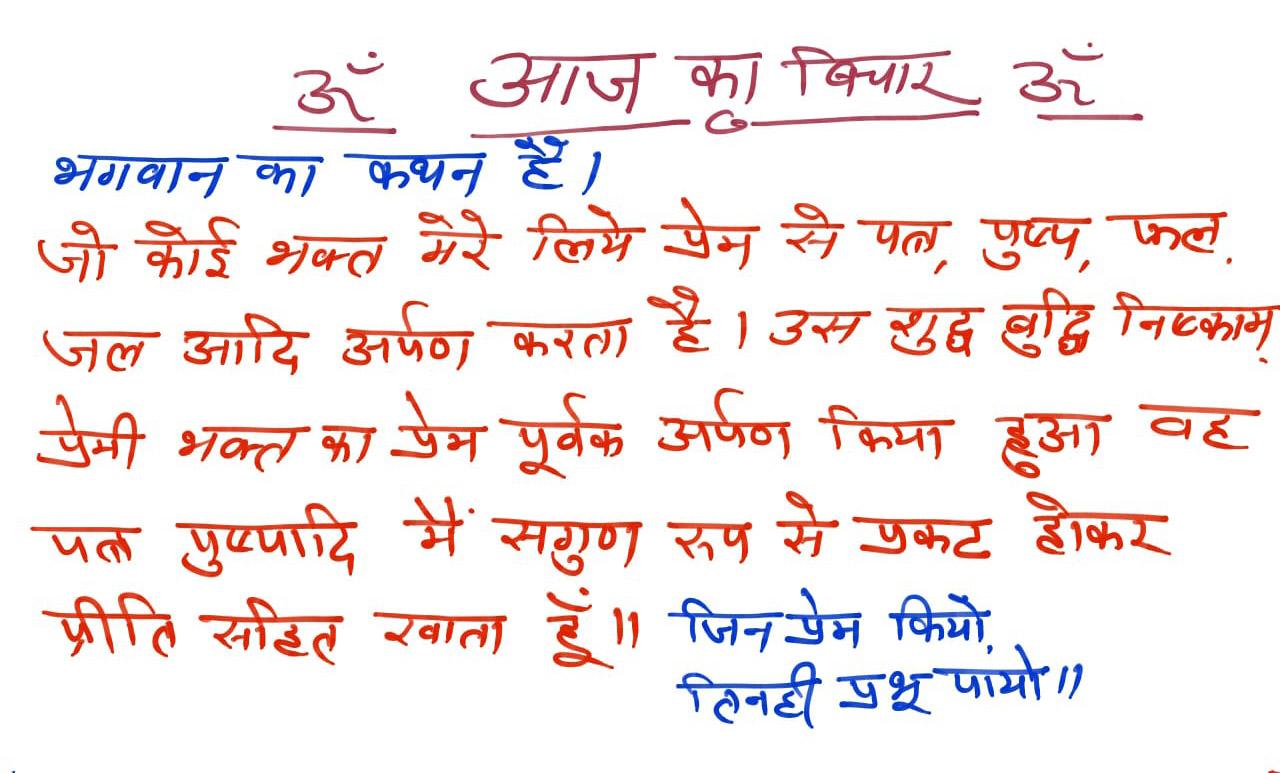 ॐ आज का विचार ॐ
भगवान का कथन है।
जो कोई भक्त मेरे लिये प्रेम से पत्र, पुष्प, फल,
जल आदि अर्पण करता है। उस शुद्ध बुद्धि निष्काम,
प्रेमी भक्त का प्रेम पूर्वक अर्पण किया हुआ वह
पत्र पुष्पादि मैं सगुण रूप से प्रकट होकर
प्रीति सहित खाता हूँ॥ जिन प्रेम कियो,
तिनही प्रभू पायो॥